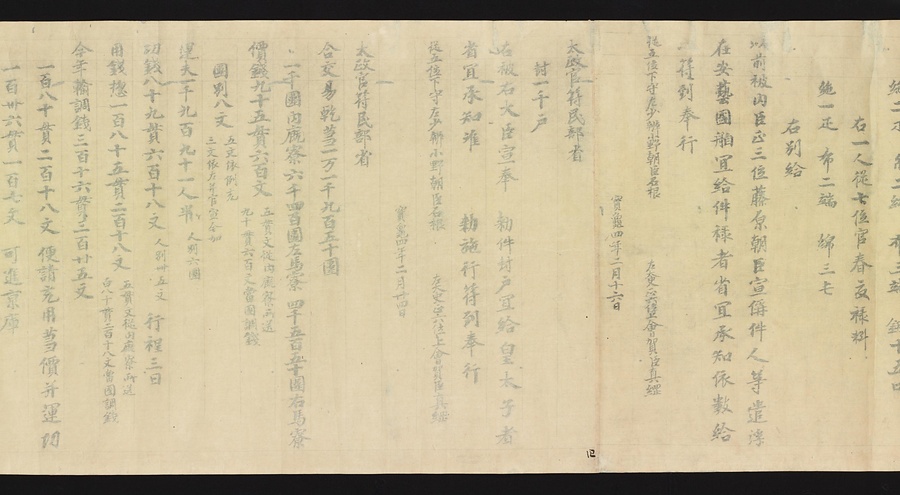 右一人従七位官春夏禄料
絁一疋 布二端 綿三屯
右別給
以前被内臣正三位藤原朝臣宣偁件人等遣渟
在安藝國舶宜給件禄者省宜承知依數給
符到奉行
従五位下守左少辨小野朝臣石根
寳龜四年二月十六日
太政官符民部省
封一千戸
右被右大臣宣奉 勅件封戸宜給皇太子者
省宜承知准 勅施行符到奉行
従五位下守左少辨小野朝臣石根 左大史正六位上會賀臣真綱
寳龜四年二月廿四日
太政官符民部省
合交易乾蒭一万一千九百五十圍
一千圍内廐寮六千四百圍左馬寮 四千五百五十圍右馬寮
價錢九十五貫六百文
五貫文従内廐寮所送
九十貫六百文當國調錢
圍別八文
五文依例充
三文依左弁官宣今加
運夫一千九百九十一人半 人別六圍
功錢八十九貫六百十八文 人別卌五文 行程三日
用錢惣一百八十五貫二百十八文
五貫文従内廐寮所送
百八十貫二百十八文當國調錢
今年輸調錢三百十六貫三百廿五文
一百八十貫二百十八文 便請充用蒭價并運功
一百卅六貫一百七文 可進京庫